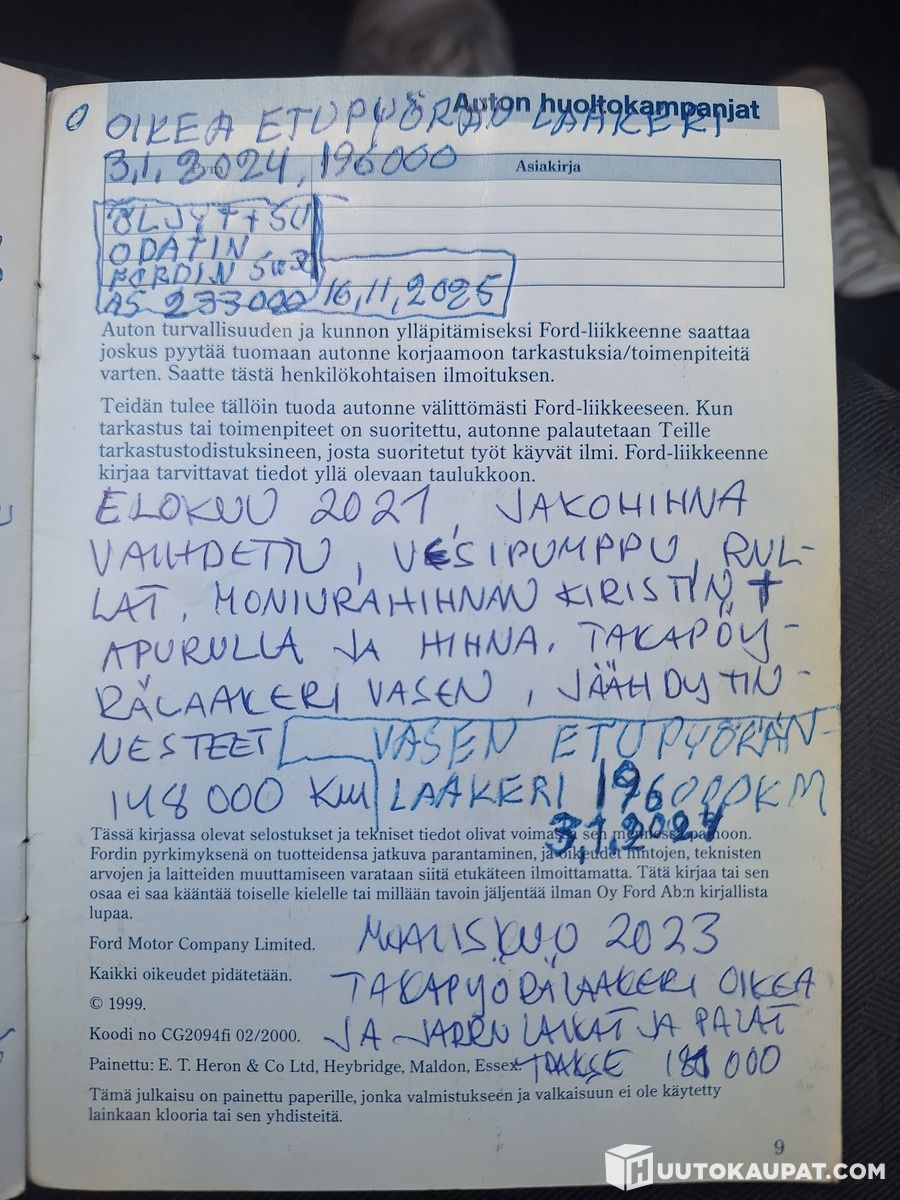 Auton huoltokampanjat
OIKEA ETUPYÖRÄN LAAKERI
3,1,2024, 196000
Asiakirja
ÖLJYT + SU
ODATIN
FORDIN 5W30
AJ 233000 16,11,2025
Auton turvallisuuden ja kunnon ylläpitämiseksi Ford-liikkeenne saattaa
joskus pyytää tuomaan autonne korjaamoon tarkastuksia/toimenpiteitä
varten. Saatte tästä henkilökohtaisen ilmoituksen.
Teidän tulee tällöin tuoda autonne välittömästi Ford-liikkeeseen. Kun
tarkastus tai toimenpiteet on suoritettu, autonne palautetaan Teille
tarkastustodistuksineen, josta suoritetut työt käyvät ilmi. Ford-liikkeenne
kirjaa tarvittavat tiedot yllä olevaan taulukkoon.
ELOKUU 2021, JAKOHIHNA
VAIHDETTU, VESIPUMPPU, RUL-
LAT, MONIURAHIHNAN KIRISTIN +
APURULLA JA HIHNA. TAKAPÖY-
RÄLAAKERI VASEN, JÄÄHDYTIN-
NESTEET VASEN ETUPYÖRÄN-
148 000 Km LAAKERI 196000KM
3,1,2024
Tässä kirjassa olevat selostukset ja tekniset tiedot olivat voimassa sen mennessä painoon.
Fordin pyrkimyksenä on tuotteidensa jatkuva parantaminen, ja oikeudet hintojen, teknisten
arvojen ja laitteiden muuttamiseen varataan siitä etukäteen ilmoittamatta. Tätä kirjaa tai sen
osaa ei saa kääntää toiselle kielelle tai millään tavoin jäljentää ilman Oy Ford Ab:n kirjallista
lupaa.
Ford Motor Company Limited.
MAALISKUU 2023
Kaikki oikeudet pidätetään.
TAKAPYÖRÄLAAKERI OIKEA
© 1999.
Koodi no CG2094fi 02/2000.
JA JARRULAIKAT JA PALAT
Painettu: E. T. Heron & Co Ltd, Heybridge, Maldon, Essex.
TAKSE 181 000
Tämä julkaisu on painettu paperille, jonka valmistukseen ja valkaisuun ei ole käytetty
lainkaan klooria tai sen yhdisteitä.
9
HUUTOKAUPAT.COM